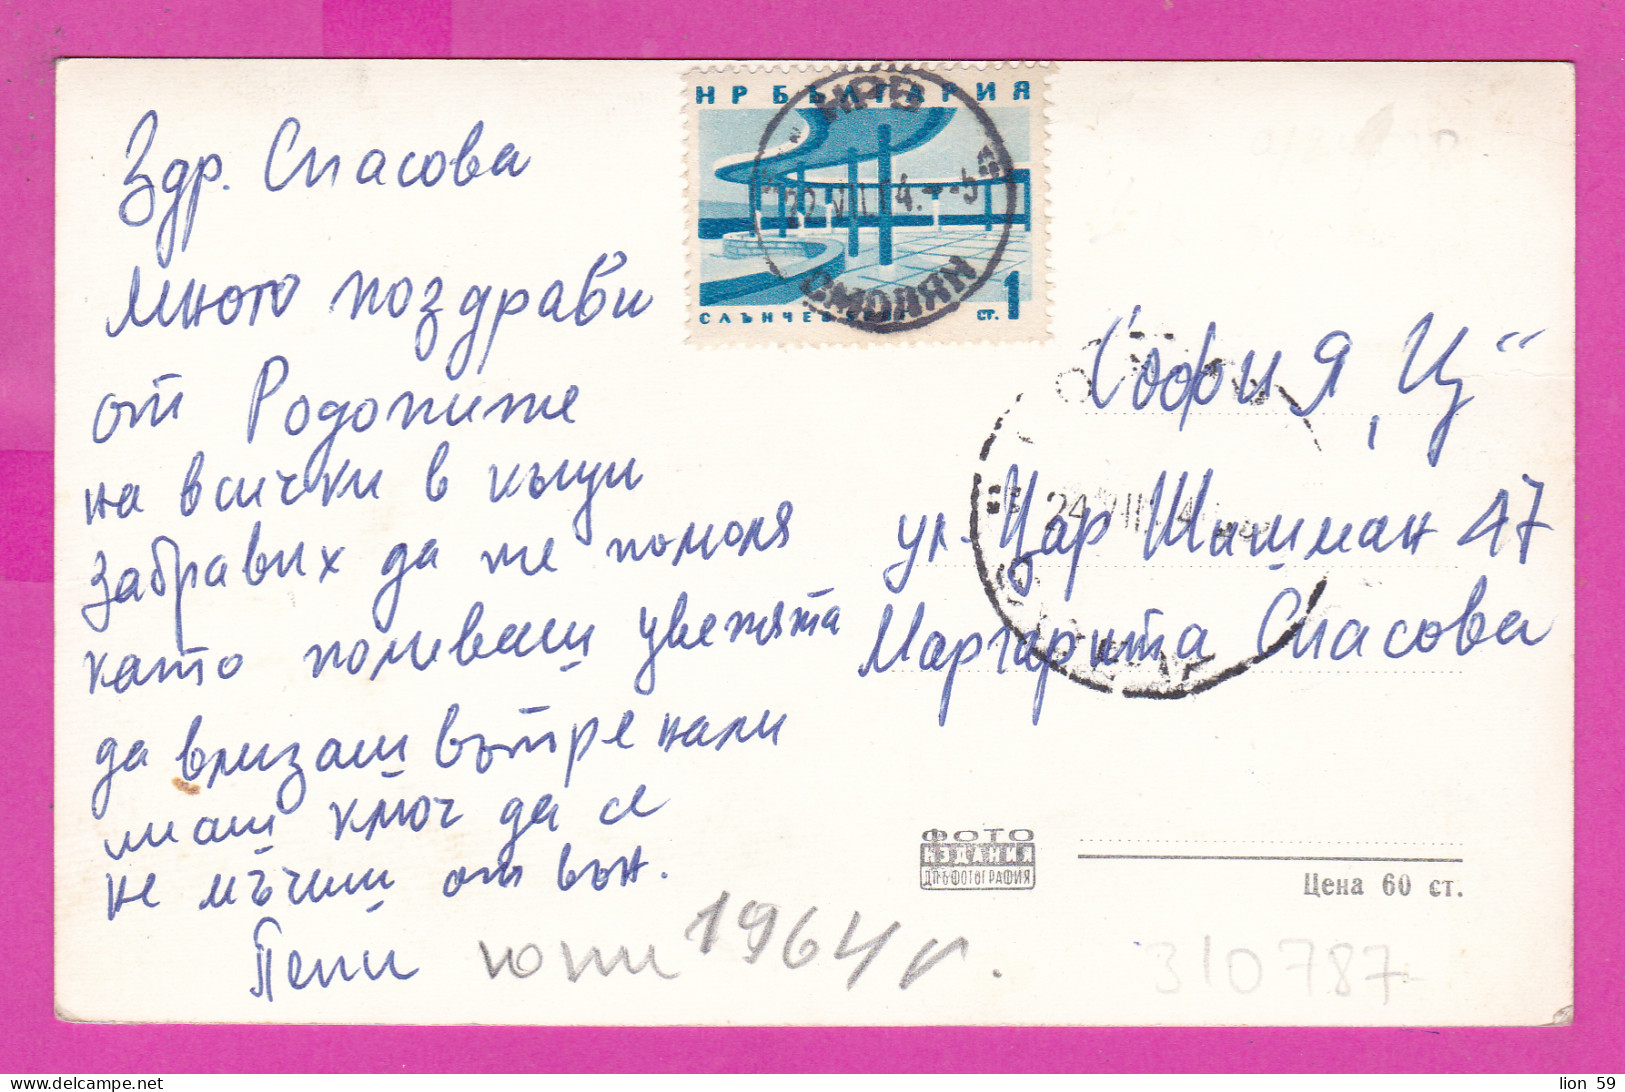 НР БЪЛГАРИЯ
НРБ
СМОЛЯН
СЛЪНЧЕВ
ст. 1
Здр. Спасова
Много поздрави
от Родопите
на всички в къщи
забравих да те помоля
като поливаш цветята
да влизаш вътре нали
имаш ключ да се
не мъчиш от вън.
Пепи
юли 1964 г.
София "Ц"
ул. Цар Шишман 47
Маргарита Спасова
ФОТО
ИЗДАНИЯ
ДПРЪФОТОГРАФИЯ
Цена 60 ст.
310787
lion 59